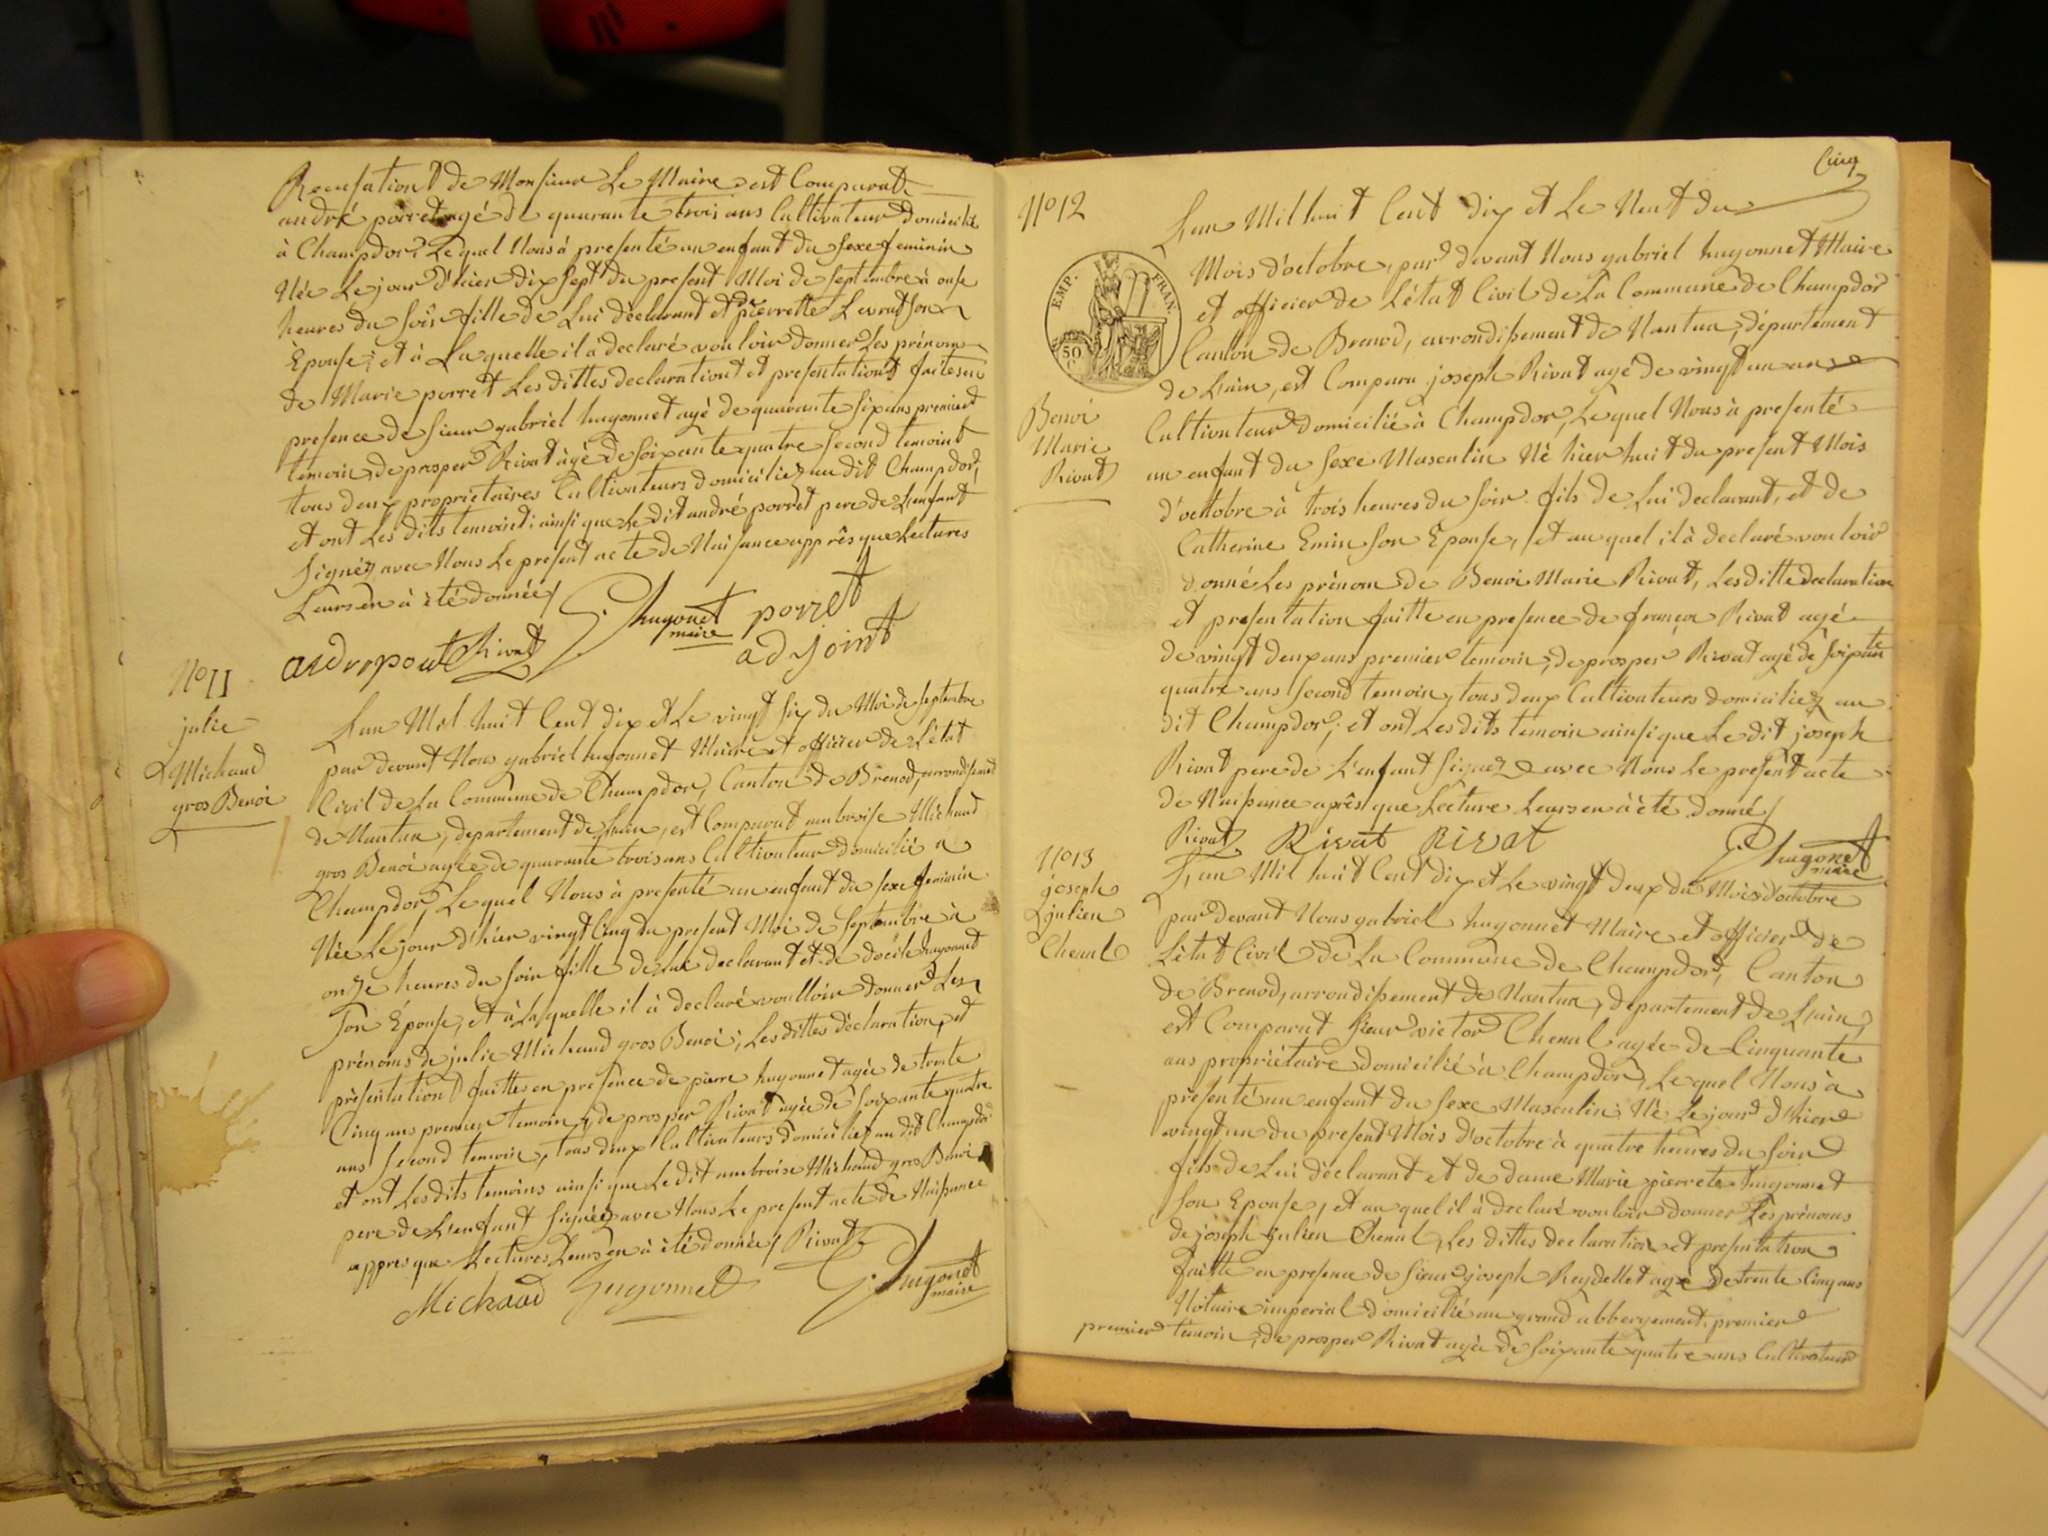 Recusation de Monsieur Le Maire est Comparut
andré porret agé de quarante trois ans Cultivateur domicilié
à Champdor, Lequel Nous à presenté un enfant du Sexe feminin
Née Le jour D'hier dix sept du present Moi de septembre à onse
heures du soir fille de Lui déclarant et pierrette Levrat son
Épouse; et à Laquelle il à declaré vouloir donner Les prénom
de Marie porret Les dittes declarationt et presentationt faites en
presence de sieur gabriel hugonnet agé de quarante six ans premier
temoin, de prosper Rivat agé de soixante quatre second temoint
tous deux propriétaires Cultivateurs domiciliez au dit Champdor,
et ont Les dits temoint; ainsi que Le dit andré porret pere de L'enfant
signéz avec Nous Le present acte de Naisance apprès que Lectures
Leursen à été donnée/
G. hugonet maire porret
adjoint
Rivat
No 11
julie
Michaud
gros Benoi
Lan Mil huit Cent dix et Le vingt six du Moi de septembre
par devant Nous gabriel hugonnet Maire et officier de L'état
Civil de La Commune de Champdor, Canton de Brenod, arrondisement
de Nantua, departement de Lain, est Comparut ambroise Michaud
gros Benoi agée de quarante trois ans Cultivateur domicilié a
Champdor, Lequel Nous à presenté un enfant du sexe feminin
Née Le jour D'hier vingt Cinq du present Moi de septembre à
onze heures du soir fille de Lui declarant et de hugonnet
son Épouse, et à Laquelle il à declaré voulloir donner Les
prénoms de julie Michaud gros Benoi; Les dittes déclaration et
présentationt faitte en presence de pierre hugonnet agée de trente
Cinq ans premier temoin, de prosper Rivat agée de soixante quatre
ans second temoin, tous deux Cultivateurs domiciliez au dit Champdor
et ont Les dits temoins ainsi que Le dit ambroise Michaud gros Benoi
pere de L'enfant signéez avec Nous Le present acte de Naissance
appres que Lectures Leursen à été donnée/ Rivat
Michaud hugonnet G. hugonet
maire
Cinq
No 12
Benoi
Marie
Rivat
EMP. FRAN.
50 C.
Lan Mil huit Cent dix et Le Neuf du
Mois d'octobre, par devant Nous gabriel hugonnet Maire
et officier de L'état Civil de La Commune de Champdor
Canton de Brenod, arrondissement de Nantua, département
de Lain, est Comparu joseph Rivat agé de vingt un ans
Cultivateur domicilié à Champdor, Lequel Nous à presenté
un enfant du sexe Masculin Né hier huit du present Mois
d'octobre à trois heures du soir fils de Lui declarant, et de
Catherine Emin son Épouse, et auquel il à declaré vouloir
donné Les prénom de Benoi Marie Rivat, Les ditte declaration
et presentation faitte en presence de françoi Rivat agé
de vingt deux ans premier temoin, de prosper Rivat agé de soixante
quatre ans second temoin, tous deux Cultivateurs domiciliez au
dit Champdor; et ont Les dits temoin ainsi que Le dit joseph
Rivat pere de L'enfant signez avec Nous Le présent acte
de Naissance après que Lecture Leursen à été donné/
Rivat Rivat Rivat G. hugonet
maire
No 13
joseph
julien
Chenal
Lan Mil huit Cent dix et Le vingt deux du Mois d'octobre
par devant Nous gabriel hugonnet Maire et officier de
L'état Civil de La Commune de Champdor, Canton
de Brenod, arrondissement de Nantua, departement de Lain,
est Comparut sieur victor Chenal agée de Cinquante
ans propriétaire domicilié à Champdor, Lequel Nous à
presenté un enfant du sexe Masculin; Né Le jour d'hier
vingt un du présent Mois d'octobre à quatre heures du soir
fils de Lui déclarant et de dame Marie pierrete hugonnet
son Epouse, et auquel il à déclaré vouloir donner Les prénoms
de joseph julien Chenal, Les dittes declaration et presentation
faitte en presence de sieur joseph Reydellet agé De trente Cinq ans
Notaire imperial domicilié au grand abbergement; premier
premier temoin, de prosper Rivat agée de soixante quatre ans Cultivateur